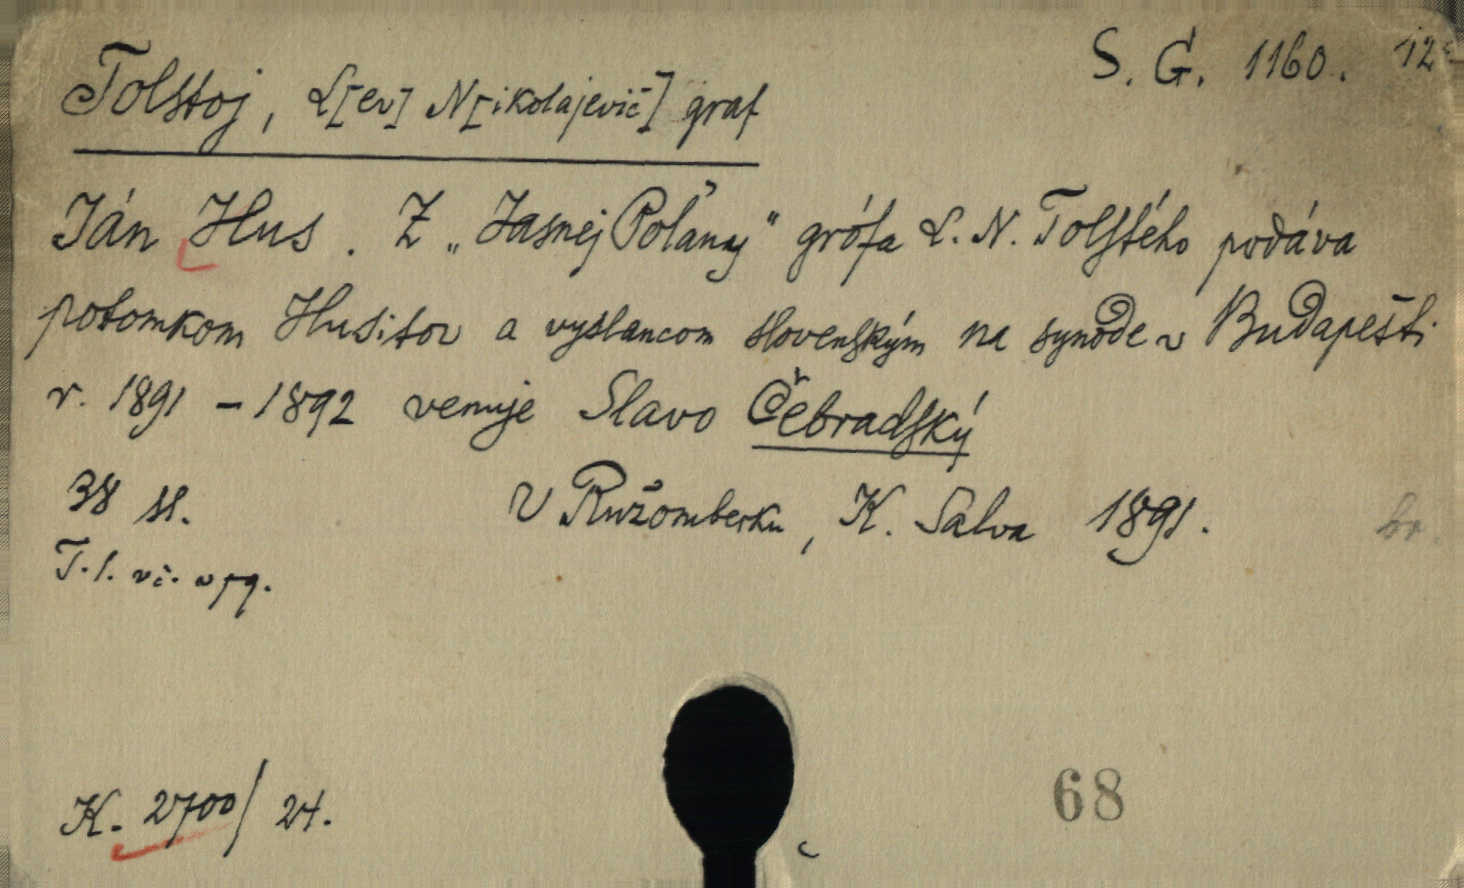 S. G. 1160. 12°
Tolstoj, L[ev] N[ikolajevič] graf
Ján Hus. Z „Jasnej Polany" grófa L. N. Tolstého podáva
potomkom Husitov a vyslancom slovenským na synode v Budapešti
r. 1891-1892 venuje Slavo Čebradský
38 st.
V Ružomberku, K. Salva 1891.
br.
T. l. vč.
K. 2700/24.
68